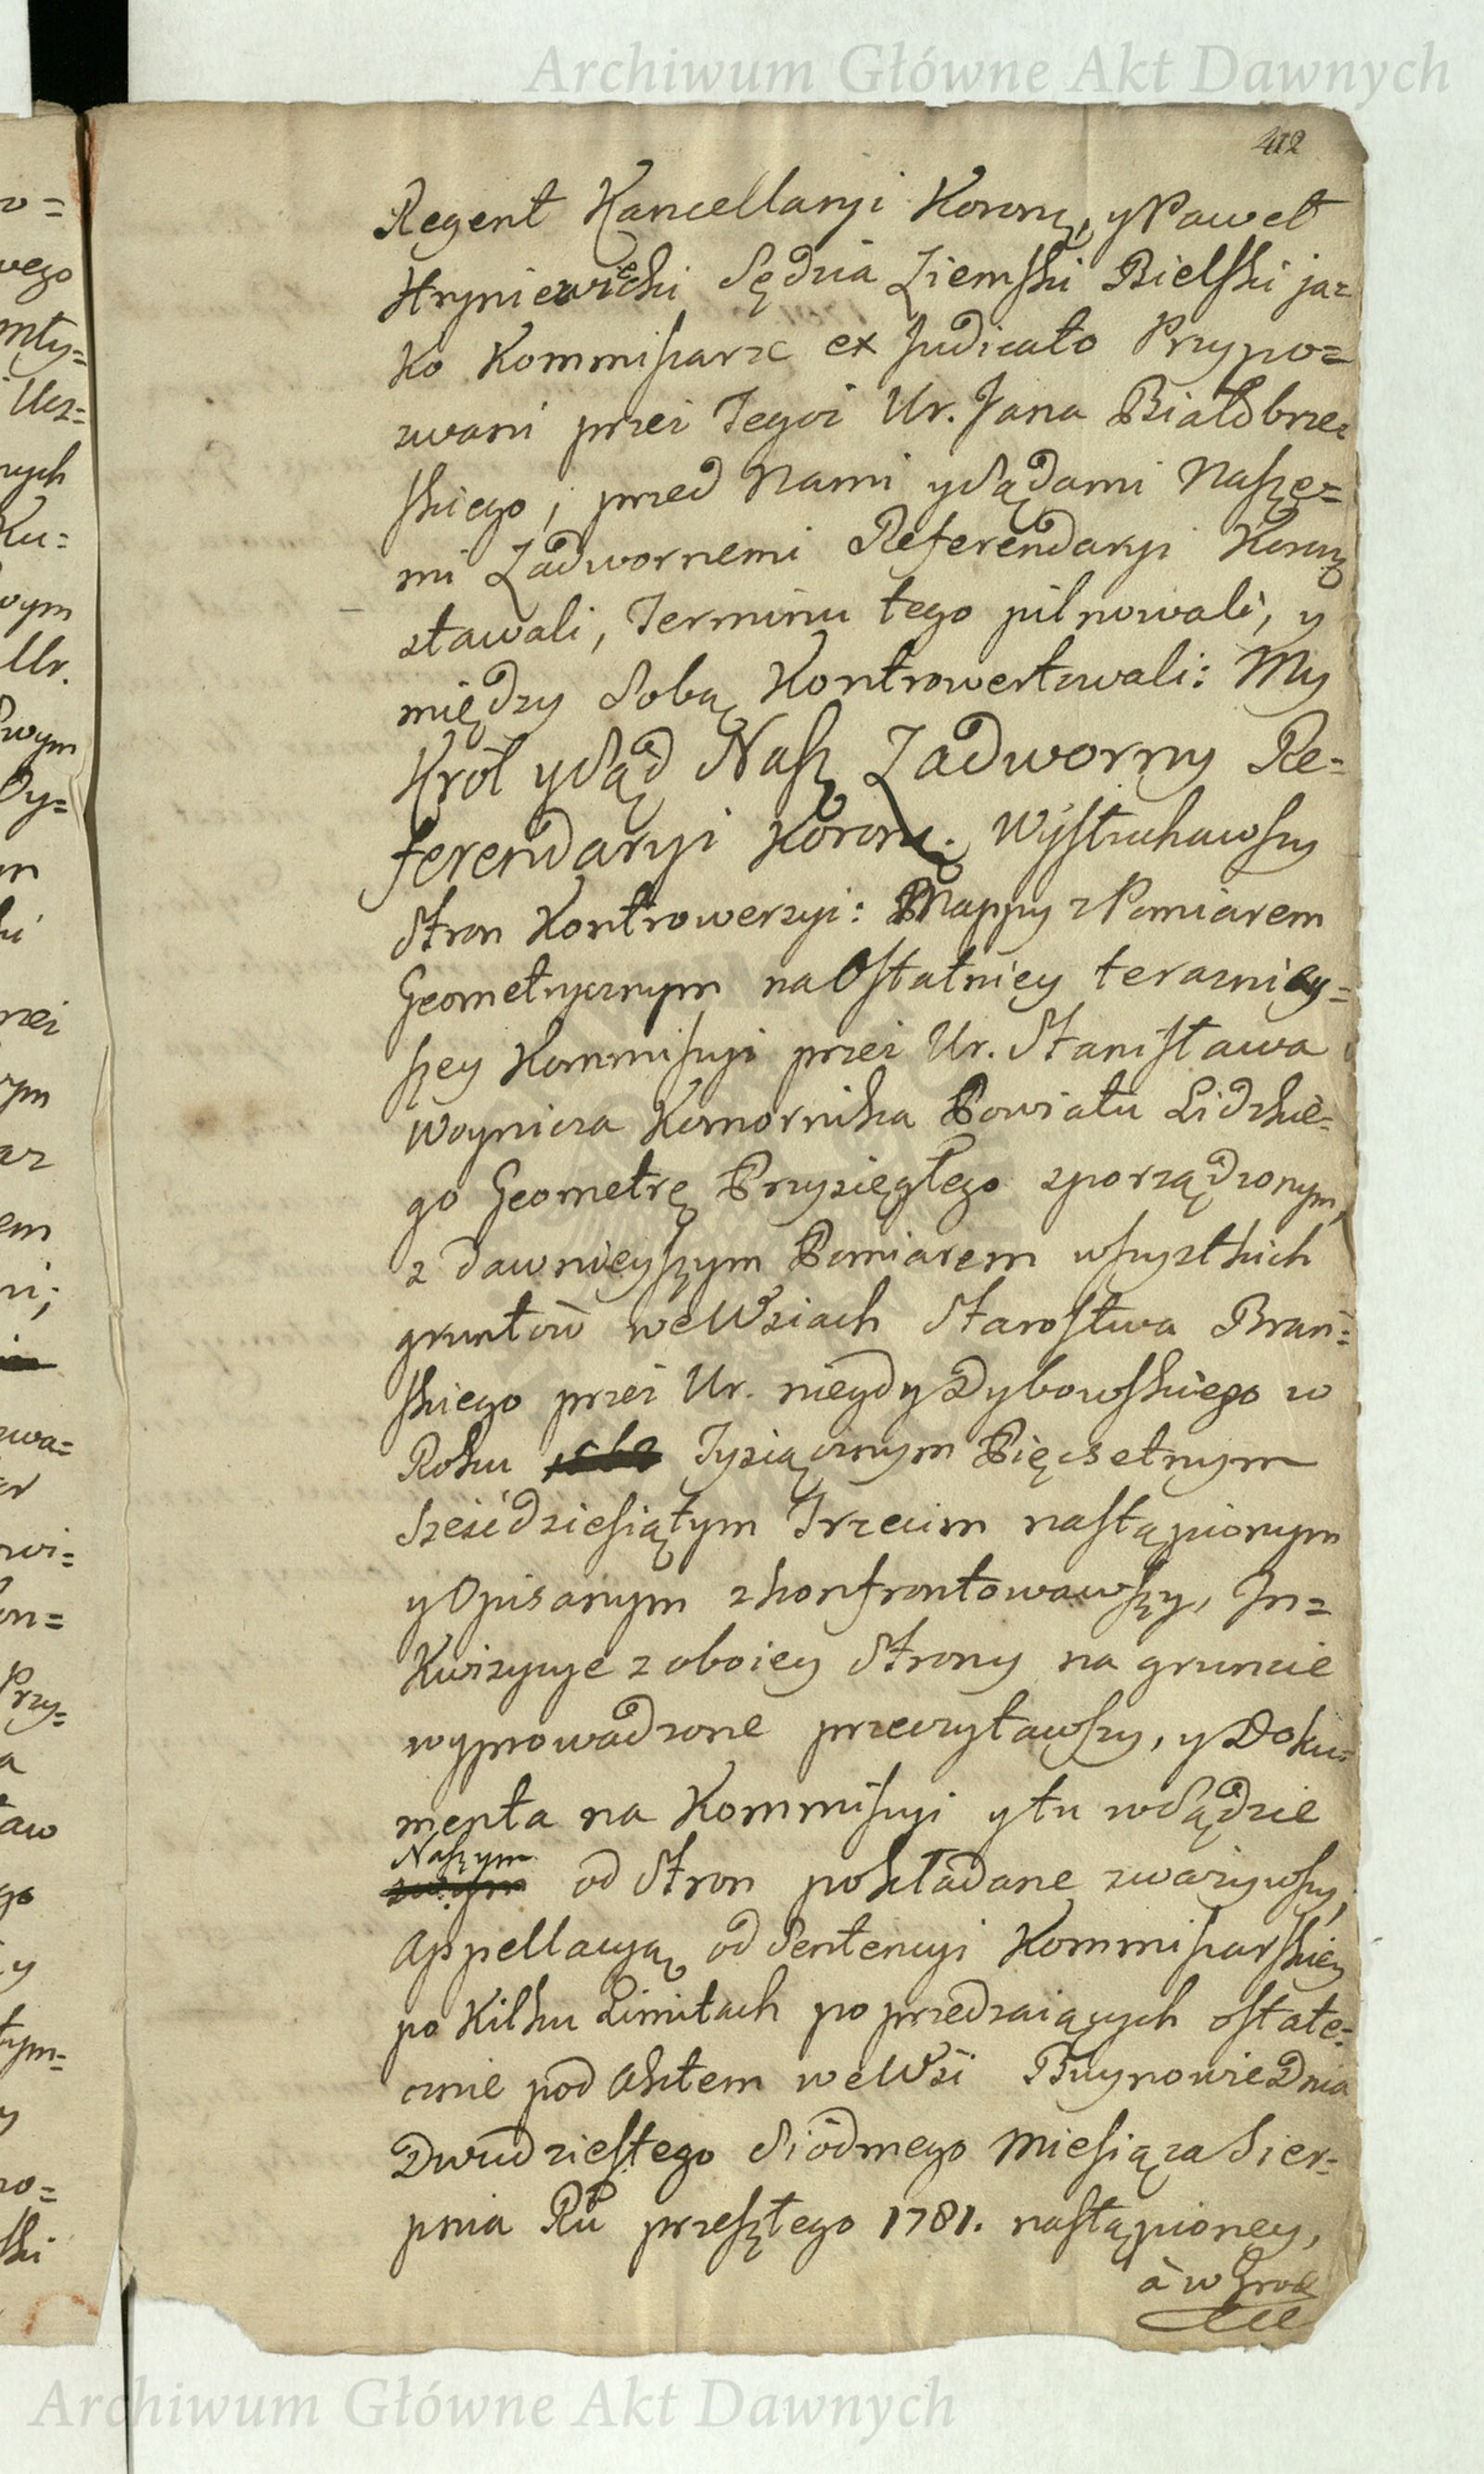 Archiwum Główne Akt Dawnych
412
Regent Kancellaryi Koronn, y Paweł
Hryniewicki Sędzia Ziemski Bielski ja=
ko Kommissarze ex Judicato Przypo=
zwani przez Tegoż Ur. Jana Białobrze=
skiego, przed Nami y Sądami Naszę=
mi Zadwornemi Referendaryi Koronn
stawali, Terminu tego pilnowali, y
między Sobą Kontrowertowali: My
Król y Sąd Nasz Zadworny Re=
ferendaryi Koronn: Wysłuchawszy
Stron Kontrowersyi: Mappy z Pomiarem
Geometrycznym na Ostatniey teraźniey=
szey Kommissyi przez Ur. Stanisława
Woynicza Komornika Powiatu Lidzkie=
go Geometrę Przysięgłego sporządzonym,
z dawnieyszym Pomiarem wszystkich
gruntów we Wsiach Starostwa Brań=
skiego przez Ur. niegdy Dybowskiego w
Roku Tysiącznym Pięćsetnym
Sześćdziesiątym Trzecim nastąpionym
y Opisanym zkonfrontowawszy, In=
kwizycye z oboiey Strony na gruncie
wyprowadzone przeczytawszy, y Doku=
menta na Kommissyi y tu w Sądzie
Naszym
od Stron pokładane zważywszy,
Appellacyą od Sentencyi Kommissarskiey
po Kilku Limitach poprzedzaiących ostate=
cznie pod Aktem we Wsi Bruynowie Dnia
Dwudziestego Siódmego Miesiąca Sier=
pnia Ru przeszłego 1781. nastąpioney,
à w Grod
Archiwum Główne Akt Dawnych